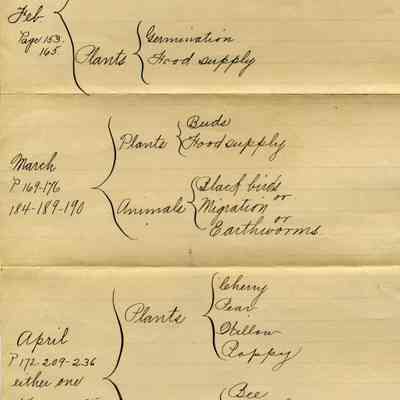 Feb
Page 153-
165.
Plants
Germination
Food supply
March
P 169-176
184-189-190
Plants
Buds
Food supply
Animals
Black birds
or
Migration
or
Earthworms
April
P 172 209-236
either one
Plants
Cherry
Pear
Willow
Poppy
Bee